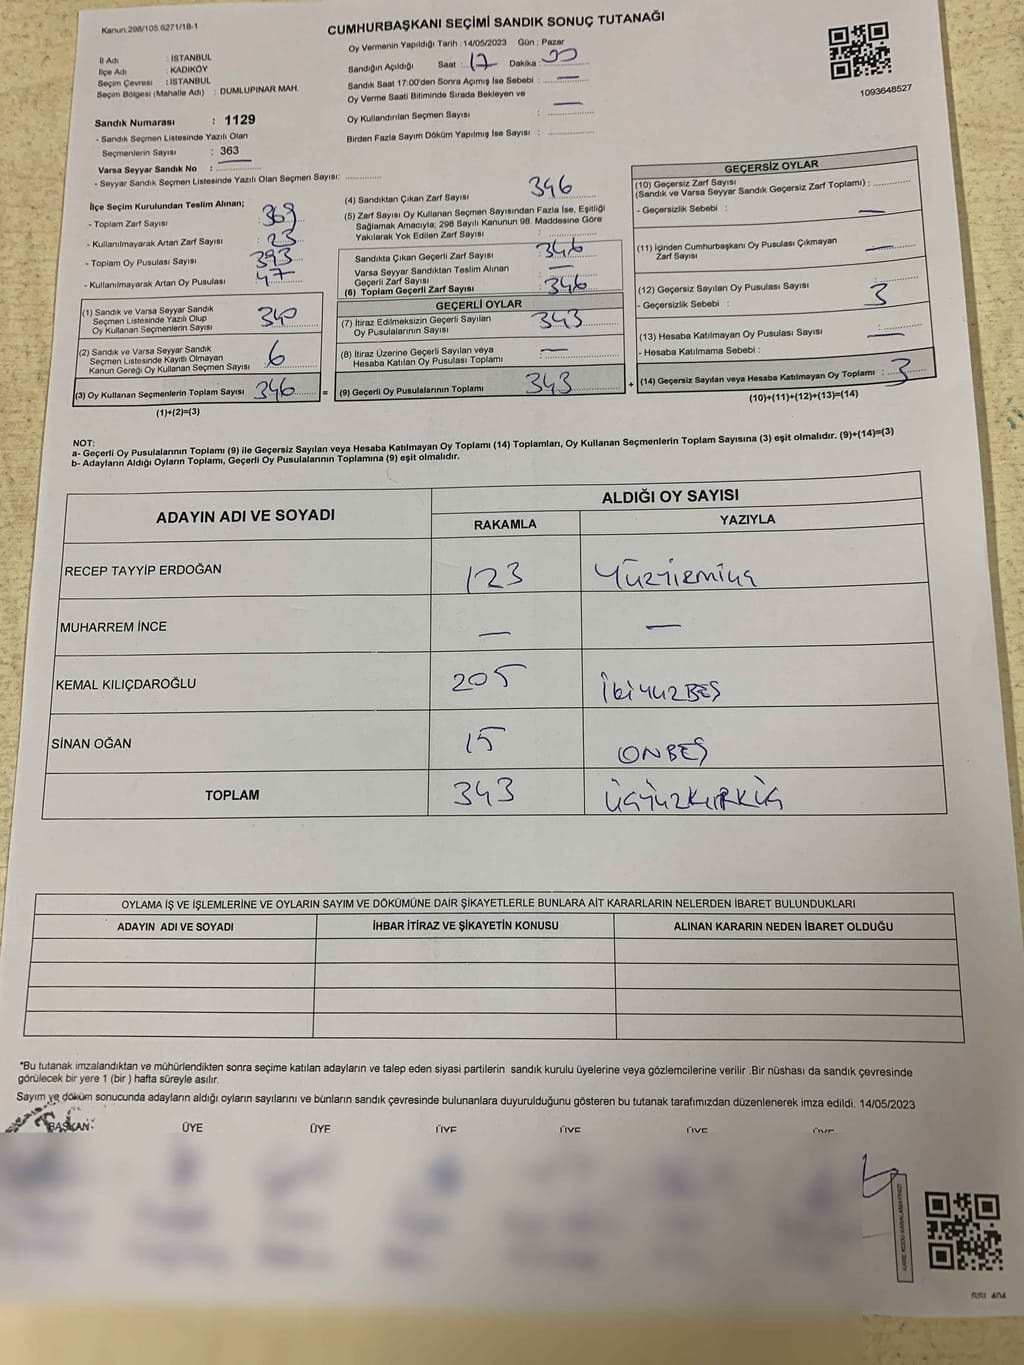 Kanun:298/105 6271/18-1
CUMHURBAŞKANI SEÇİMİ SANDIK SONUÇ TUTANAĞI
İl Adı : İSTANBUL
İlçe Adı : KADIKÖY
Seçim Çevresi : İSTANBUL
Seçim Bölgesi (Mahalle Adı) : DUMLUPINAR MAH.
Oy Vermenin Yapıldığı Tarih : 14/05/2023 Gün : Pazar
Sandığın Açıldığı Saat : 17 Dakika : 00
Sandık Saat 17:00'den Sonra Açımış İse Sebebi : —
Oy Verme Saati Bitiminde Sırada Bekleyen ve
Oy Kullandırılan Seçmen Sayısı : —
Birden Fazla Sayım Döküm Yapılmış İse Sayısı :
1093648527
Sandık Numarası : 1129
- Sandık Seçmen Listesinde Yazılı Olan
Seçmenlerin Sayısı : 363
Varsa Seyyar Sandık No :
- Seyyar Sandık Seçmen Listesinde Yazılı Olan Seçmen Sayısı:
İlçe Seçim Kurulundan Teslim Alınan;
- Toplam Zarf Sayısı : 369
- Kullanılmayarak Artan Zarf Sayısı : 23
- Toplam Oy Pusulası Sayısı : 393
- Kullanılmayarak Artan Oy Pusulası : 47
(1) Sandık ve Varsa Seyyar Sandık
Seçmen Listesinde Yazılı Olup
Oy Kullanan Seçmenlerin Sayısı : 340
(2) Sandık ve Varsa Seyyar Sandık
Seçmen Listesinde Kayıtlı Olmayan
Kanun Gereği Oy Kullanan Seçmen Sayısı : 6
(3) Oy Kullanan Seçmenlerin Toplam Sayısı 346 =
(1)+(2)=(3)
(4) Sandıktan Çıkan Zarf Sayısı : 346
(5) Zarf Sayısı Oy Kullanan Seçmen Sayısından Fazla İse, Eşitliği
Sağlamak Amacıyla; 298 Sayılı Kanunun 98. Maddesine Göre
Yakılarak Yok Edilen Zarf Sayısı :
Sandıkta Çıkan Geçerli Zarf Sayısı : 346
Varsa Seyyar Sandıktan Teslim Alınan
Geçerli Zarf Sayısı : —
(6) Toplam Geçerli Zarf Sayısı : 346
GEÇERLİ OYLAR
(7) İtiraz Edilmeksizin Geçerli Sayılan
Oy Pusulalarının Sayısı : 343
(8) İtiraz Üzerine Geçerli Sayılan veya
Hesaba Katılan Oy Pusulası Toplamı : —
(9) Geçerli Oy Pusulalarının Toplamı : 343 +
GEÇERSİZ OYLAR
(10) Geçersiz Zarf Sayısı
(Sandık ve Varsa Seyyar Sandık Geçersiz Zarf Toplamı) :
- Geçersizlik Sebebi : —
(11) İçinden Cumhurbaşkanı Oy Pusulası Çıkmayan
Zarf Sayısı : —
(12) Geçersiz Sayılan Oy Pusulası Sayısı : 3
- Geçersizlik Sebebi :
(13) Hesaba Katılmayan Oy Pusulası Sayısı : —
- Hesaba Katılmama Sebebi :
(14) Geçersiz Sayılan veya Hesaba Katılmayan Oy Toplamı : 3
(10)+(11)+(12)+(13)=(14)
NOT:
a- Geçerli Oy Pusulalarının Toplamı (9) ile Geçersiz Sayılan veya Hesaba Katılmayan Oy Toplamı (14) Toplamları, Oy Kullanan Seçmenlerin Toplam Sayısına (3) eşit olmalıdır. (9)+(14)=(3)
b- Adayların Aldığı Oyların Toplamı, Geçerli Oy Pusulalarının Toplamına (9) eşit olmalıdır.
ADAYIN ADI VE SOYADI ALDIĞI OY SAYISI
RAKAMLA YAZIYLA
RECEP TAYYİP ERDOĞAN 123 Yüzyirmiüç
MUHARREM İNCE — —
KEMAL KILIÇDAROĞLU 205 İkiyüzBEŞ
SİNAN OĞAN 15 ONBEŞ
TOPLAM 343 ÜçyüzKIRKüç
OYLAMA İŞ VE İŞLEMLERİNE VE OYLARIN SAYIM VE DÖKÜMÜNE DAİR ŞİKAYETLERLE BUNLARA AİT KARARLARIN NELERDEN İBARET BULUNDUKLARI
ADAYIN ADI VE SOYADI İHBAR İTİRAZ VE ŞİKAYETİN KONUSU ALINAN KARARIN NEDEN İBARET OLDUĞU
*Bu tutanak imzalandıktan ve mühürlendikten sonra seçime katılan adayların ve talep eden siyasi partilerin sandık kurulu üyelerine veya gözlemcilerine verilir .Bir nüshası da sandık çevresinde
görülecek bir yere 1 (bir ) hafta süreyle asılır.
Sayım ve döküm sonucunda adayların aldığı oyların sayılarını ve bunların sandık çevresinde bulunanlara duyurulduğunu gösteren bu tutanak tarafımızdan düzenlenerek imza edildi. 14/05/2023
BAŞKAN: ÜYE ÜYE ÜYE ÜYE ÜYE ÜYE
KARE KODU KARALAMAYINIZ!